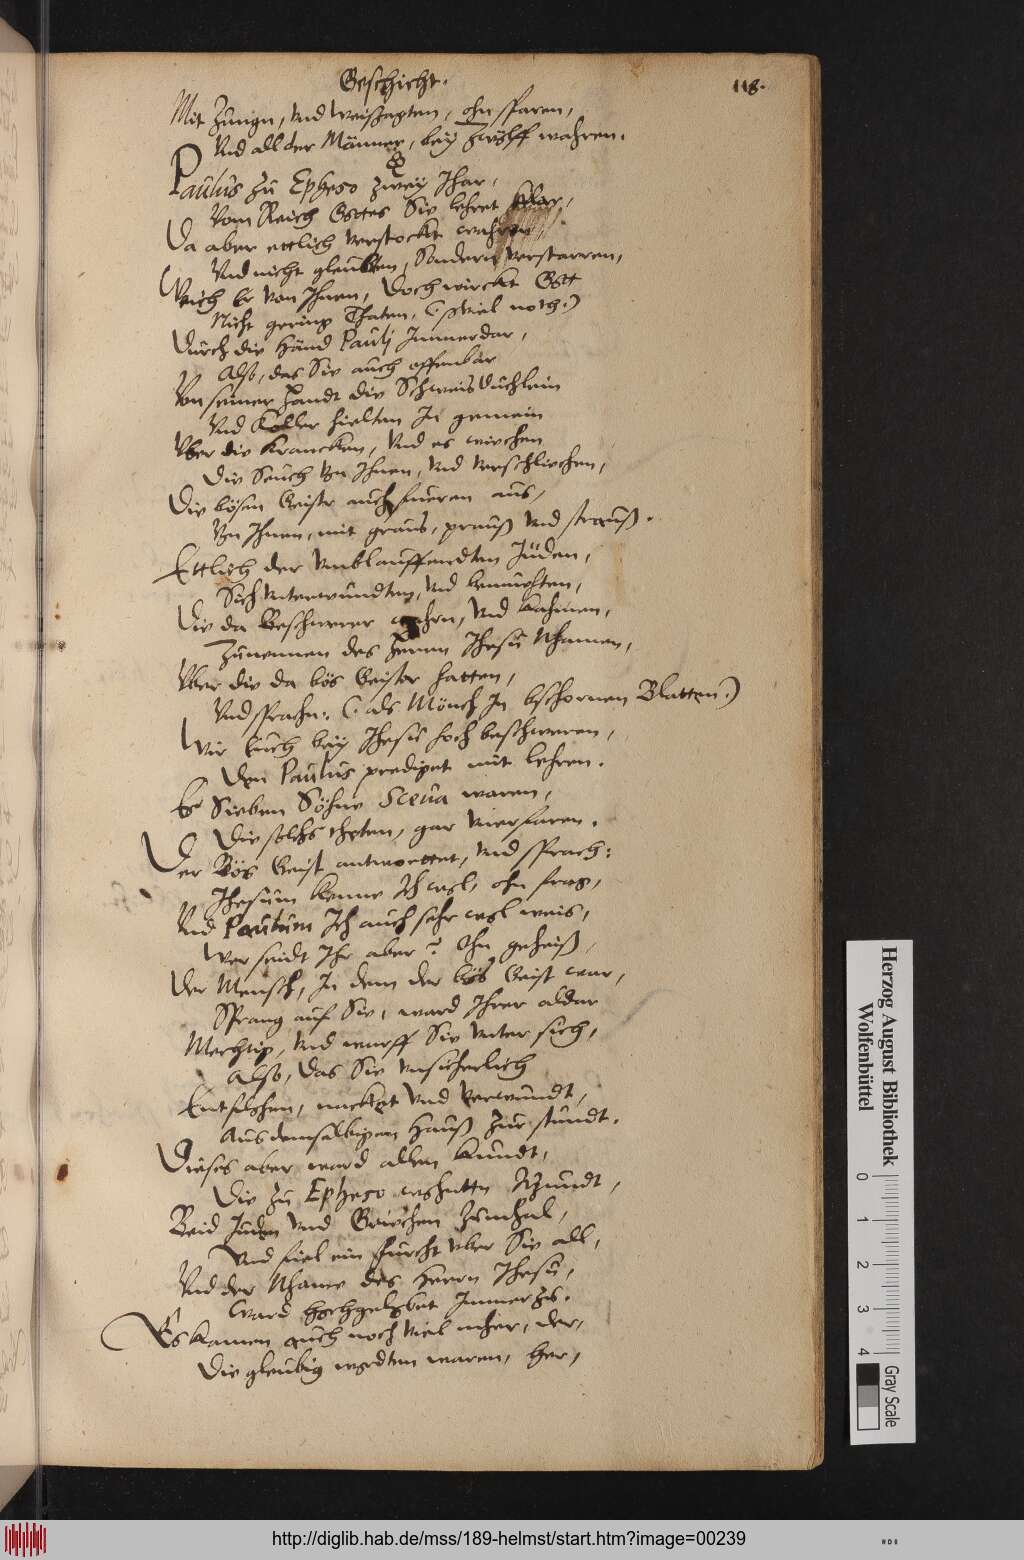 Geschicht.
118.
Mit Zungn, vnd weissagten, ohn sparen,
Vnd all der Männer, bey zwölff wahren.
Paulus zu Epheso zwey Jhar,
Vom Reich Gottes Sie lehret klar,
Da aber ettlich verstockt wahren,
Vnd nicht gleubten, Sondern verstarren,
Weich Er von Jhnen, Doch wirckt Gott
Nicht gering Thaten, (viel noth.)
Durch die Händ Paulj Jmmerdar,
Also, das Sie auch offenbar
Von seiner Handt die Schweisduchlein
Vnd Koller hielten Jn gemein
Vber die Krancken, Vnd es wiechen
Die Seuch von Jhnen, vnd verschliechen,
Die bösen Geistr auch fueren aus,
Von Jhnen, mit graus, prauß vnd strauß.
Ettlich der vmblauffendten Jüden,
Sich vnterwundten, vnd bemuehten,
Die da Beschwerer wahrn, vnd kahmen,
Zunennen des Herrn Jhesu Nhamen,
Vber die da bös Geister hatten,
Vnd sprachn: (als Mönch Jn bschornen Blatten.)
Wir Euch bey Jhesu hoch beschweren,
Den Paulus prediget mit lehren.
Es Sieben Söhne Sceua waren,
Die solchs theten, gar vnerfaren.
Der Bös Geist antwortet, vnd sprach:
Jhesum kenne Jch wol, ohn frag,
Vnd Paulum Jch auch sehr wol weis,
Wer seidt Jhr aber? Ohn geheiß,
Der Mensch, Jn dem der bös Geist war,
Sprang auf Sie, ward Jhrer aldar
Mechtig, vnd warff Sie vnter sich,
Also, das Sie vnsicherlich
Entflohen, nacket vnd verwundt,
Aus demselbigem Hauß zur stundt.
Dieses aber ward allen kundt,
Die zu Epheso wohntn Jtzundt,
Beid Juden vnd Griechen zumhal,
Vnd fiel ein furcht vber Sie all,
Vnd der Nhame des Herrn Jhesu,
Ward hochgelobet Jmmerzu.
Es kamen auch noch viel mher, der,
Die gleubig wordten waren, her,
Herzog August Bibliothek
Wolfenbüttel
0 1 2 3 4
Gray Scale
http://diglib.hab.de/mss/189-helmst/start.htm?image=00239